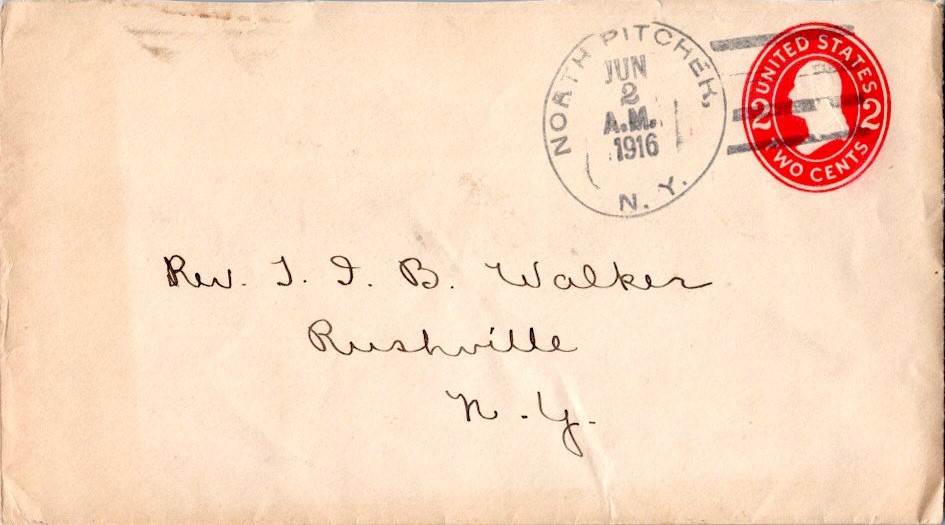 NORTH PITCHER,
JUN
2
A.M.
1916
N. Y.
UNITED STATES
2 2
TWO CENTS
Rev. T. I. B. Walker
Rushville
N. Y.